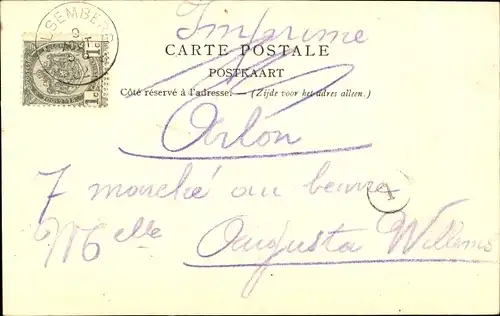 LSEMBER
Imprimé
CARTE POSTALE
POSTKAART
Côté réservé à l'adresse. — (Zijde voor het adres alleen.)
Arlon
7 marché au beurre
Melle Augusta Willems